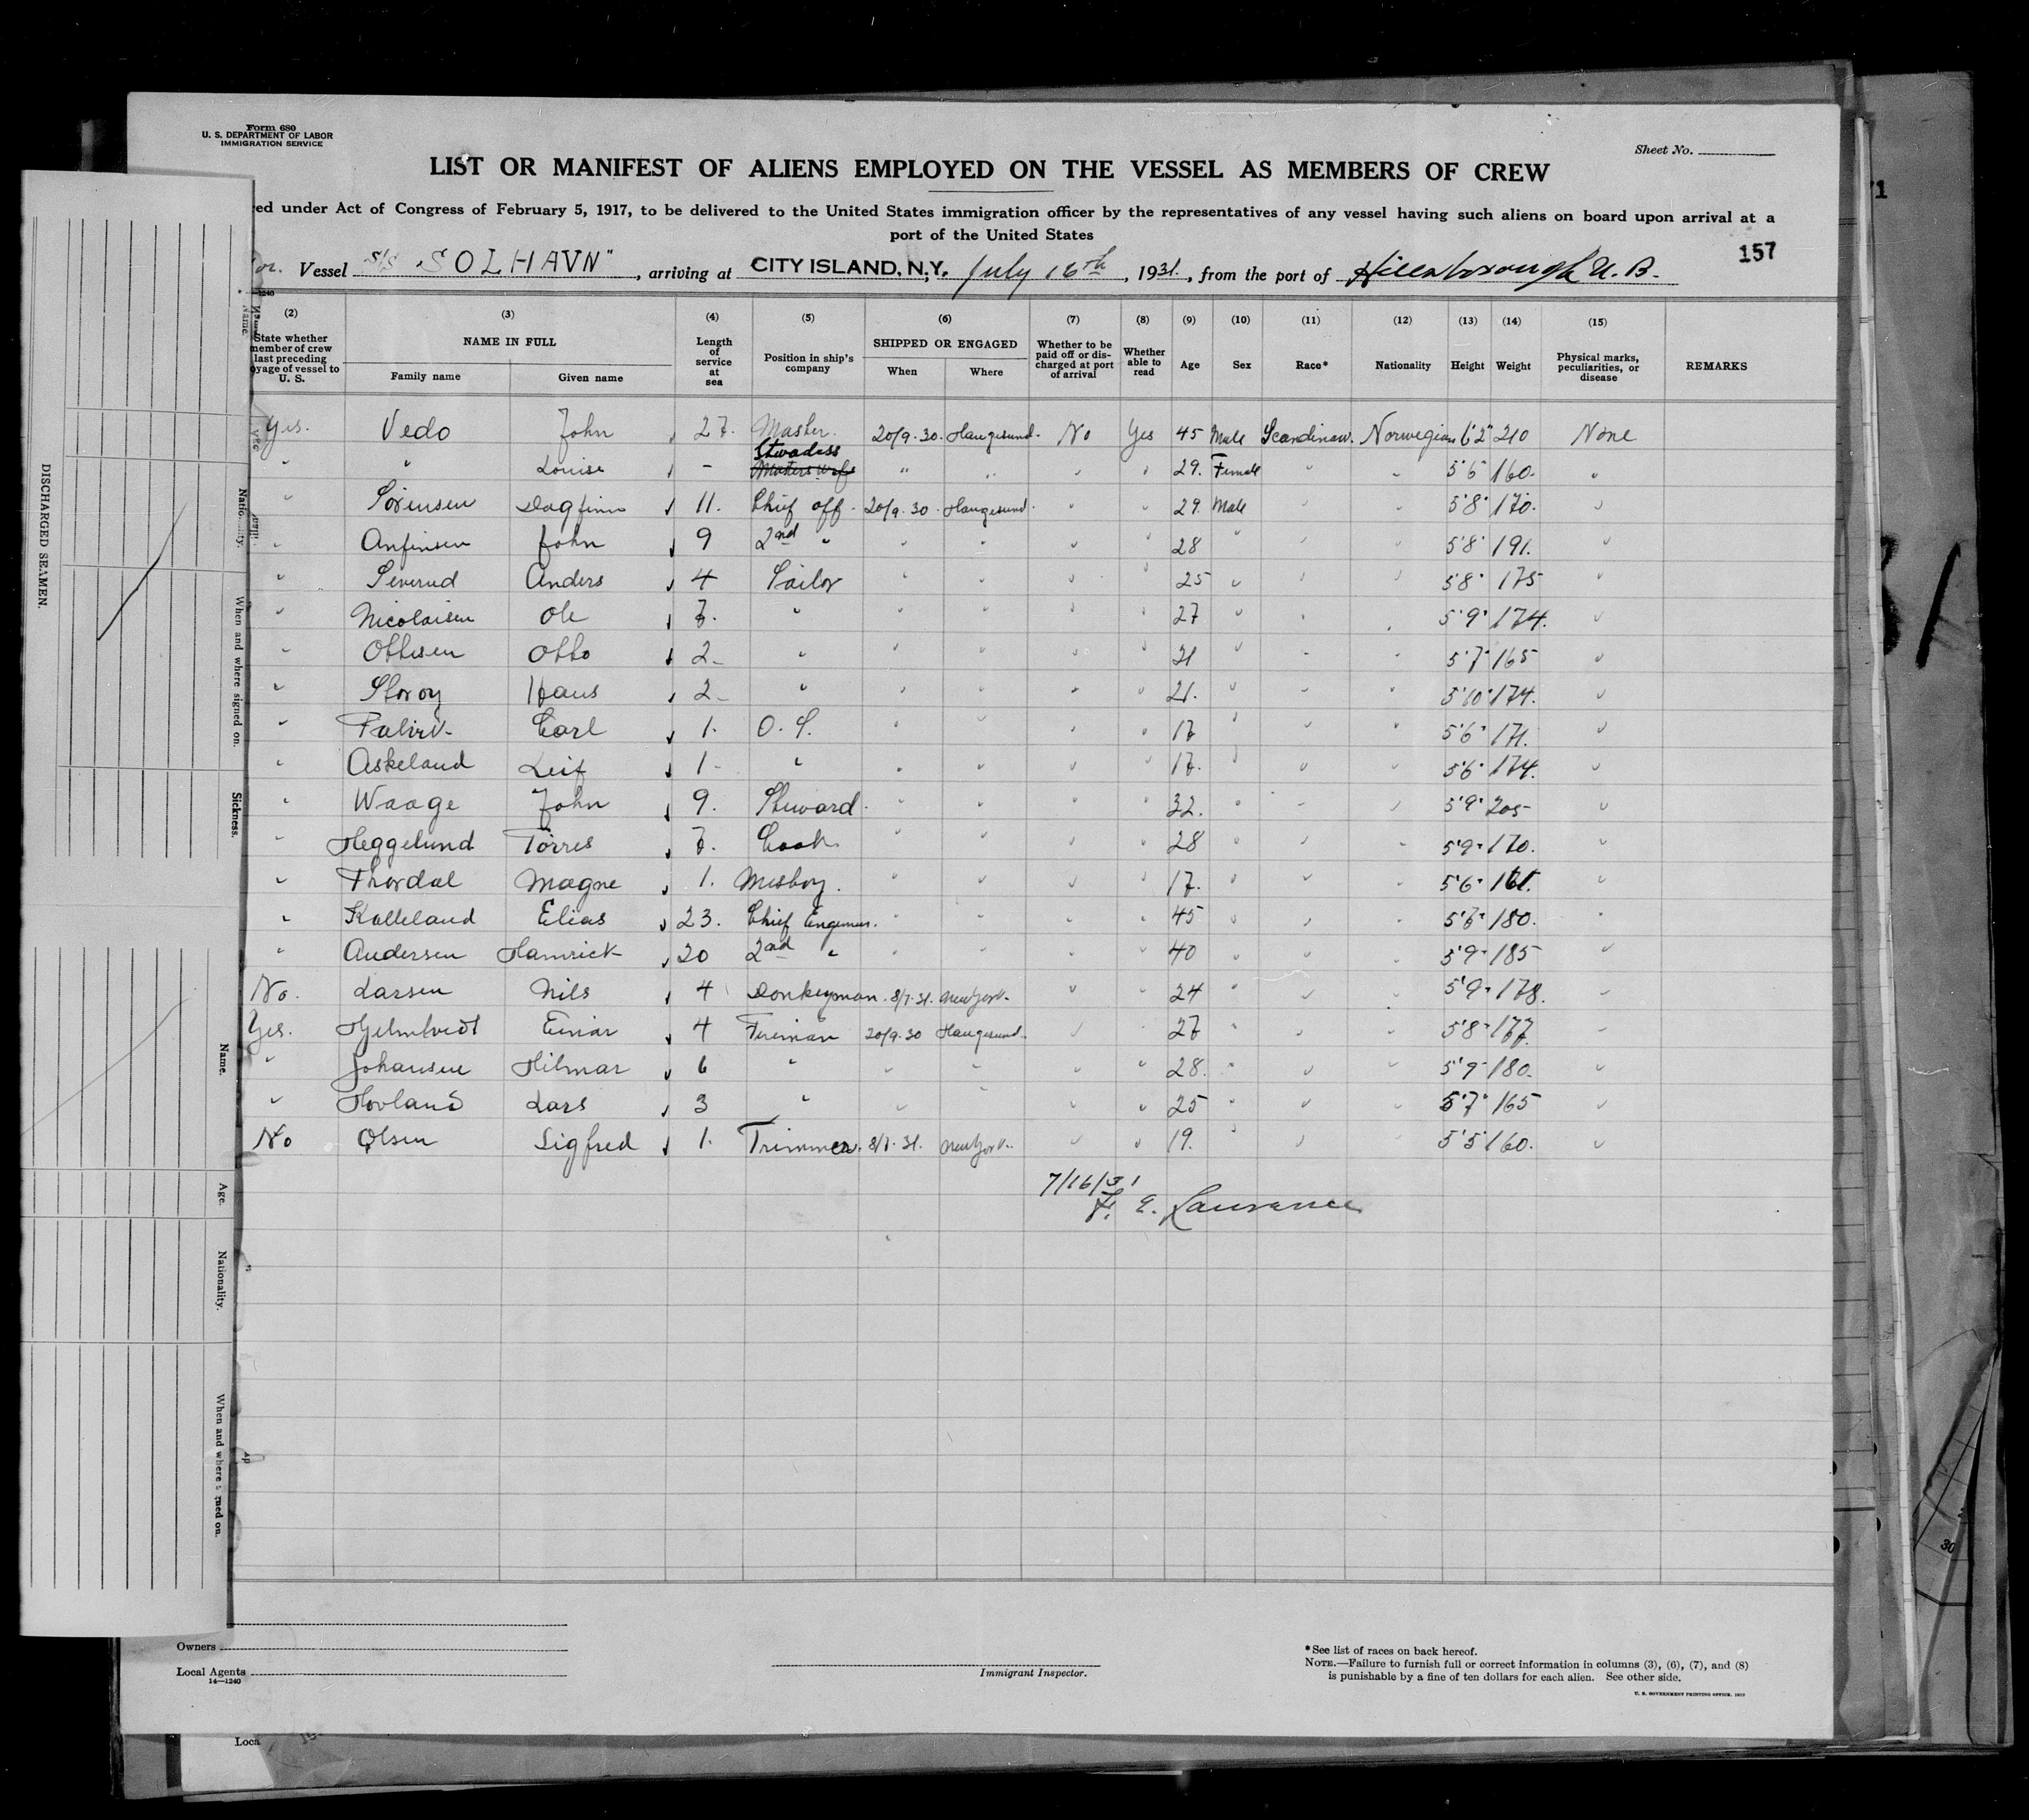 Form 680
U. S. DEPARTMENT OF LABOR
IMMIGRATION SERVICE
Sheet No.
LIST OR MANIFEST OF ALIENS EMPLOYED ON THE VESSEL AS MEMBERS OF CREW
red under Act of Congress of February 5, 1917, to be delivered to the United States immigration officer by the representatives of any vessel having such aliens on board upon arrival at a
port of the United States
157
Nor. Vessel S/S "SOLHAVN", arriving at CITY ISLAND, N.Y. July 16th, 1931, from the port of Hillsborough N. B.
(2) (3) (4) (5) (6) (7) (8) (9) (10) (11) (12) (13) (14) (15)
State whether member of crew last preceding oyage of vessel to U. S. NAME IN FULL Family name Given name Length of service at sea Position in ship's company SHIPPED OR ENGAGED When Where Whether to be paid off or discharged at port of arrival Whether able to read Age Sex Race* Nationality Height Weight Physical marks, peculiarities, or disease REMARKS
Yes. Vedo John 27. Master. 20/9.30. Haugesund. No Yes 45 Male Scandinav. Norwegian 6'2" 210 None
" " Louise - Stwadess Masters wife " " " " 29. Female " " 5'5 160. "
" Sörensen Dagfinn 11. Chief off. 20/9.30. Haugesund. " " 29. Male 5'8" 170. "
" Anfinsen John 9 2nd " " " " " 28 " " " 5'8" 191. "
" Severud Anders 4 Sailor " " " " 25 " " " 5'8" 175 "
" Nicolaisen Ole 7. " " " " " 27 " " " 5'9" 174. "
" Ottesen Otto 2- " " " " " 21 " " " 5'7" 165 "
" Storoy Hans 2- " " " " " 21. " " " 5'10" 174. "
" Carl 1. O. S. " " " " 17 " " " 5'6" 171. "
" Askeland Leif 1- " " " " " 17. " " " 5'6" 174. "
" Waage John 9. Steward. " " " " 32. " " " 5'9" 205 "
" Heggelund Torres 7. Cook " " " " 28 " " " 5'9" 170. "
" Thordal Magne 1. Messboy. " " " " 17. " " " 5'6" 161. "
" Kalleland Elias 23. Chief Engeneer. " " " " 45 " " " 5'7" 180. "
" Andersen Hamrick 20 2nd " " " " " 40 " " " 5'9" 185 "
No. Larsen Nils 4 Donkeyman. 8/7.31. New York. " " 24 " " " 5'9" 178. "
Yes. Hjelmtvedt Einar 4 Fireman 20/9.30 Haugesund. " " 27 " " " 5'8" 177. "
" Johansen Hilmar 6 " " " " " 28. " " " 5'9" 180. "
" Hovland Lars 3 " " " " " 25 " " " 5'7" 165 "
No Olsen Sigfred 1. Trimmer. 8/7.31. New York. " " 19. " " " 5'5 160. "
7/16/31
F. E. Lawrence
DISCHARGED SEAMEN.
Name.
Nationality.
When and where signed on.
Sickness.
Name.
Age.
Nationality.
When and where signed on.
Owners
Local Agents
14—1240
Immigrant Inspector.
*See list of races on back hereof.
NOTE.—Failure to furnish full or correct information in columns (3), (6), (7), and (8)
is punishable by a fine of ten dollars for each alien. See other side.
U. S. GOVERNMENT PRINTING OFFICE
Loca
30